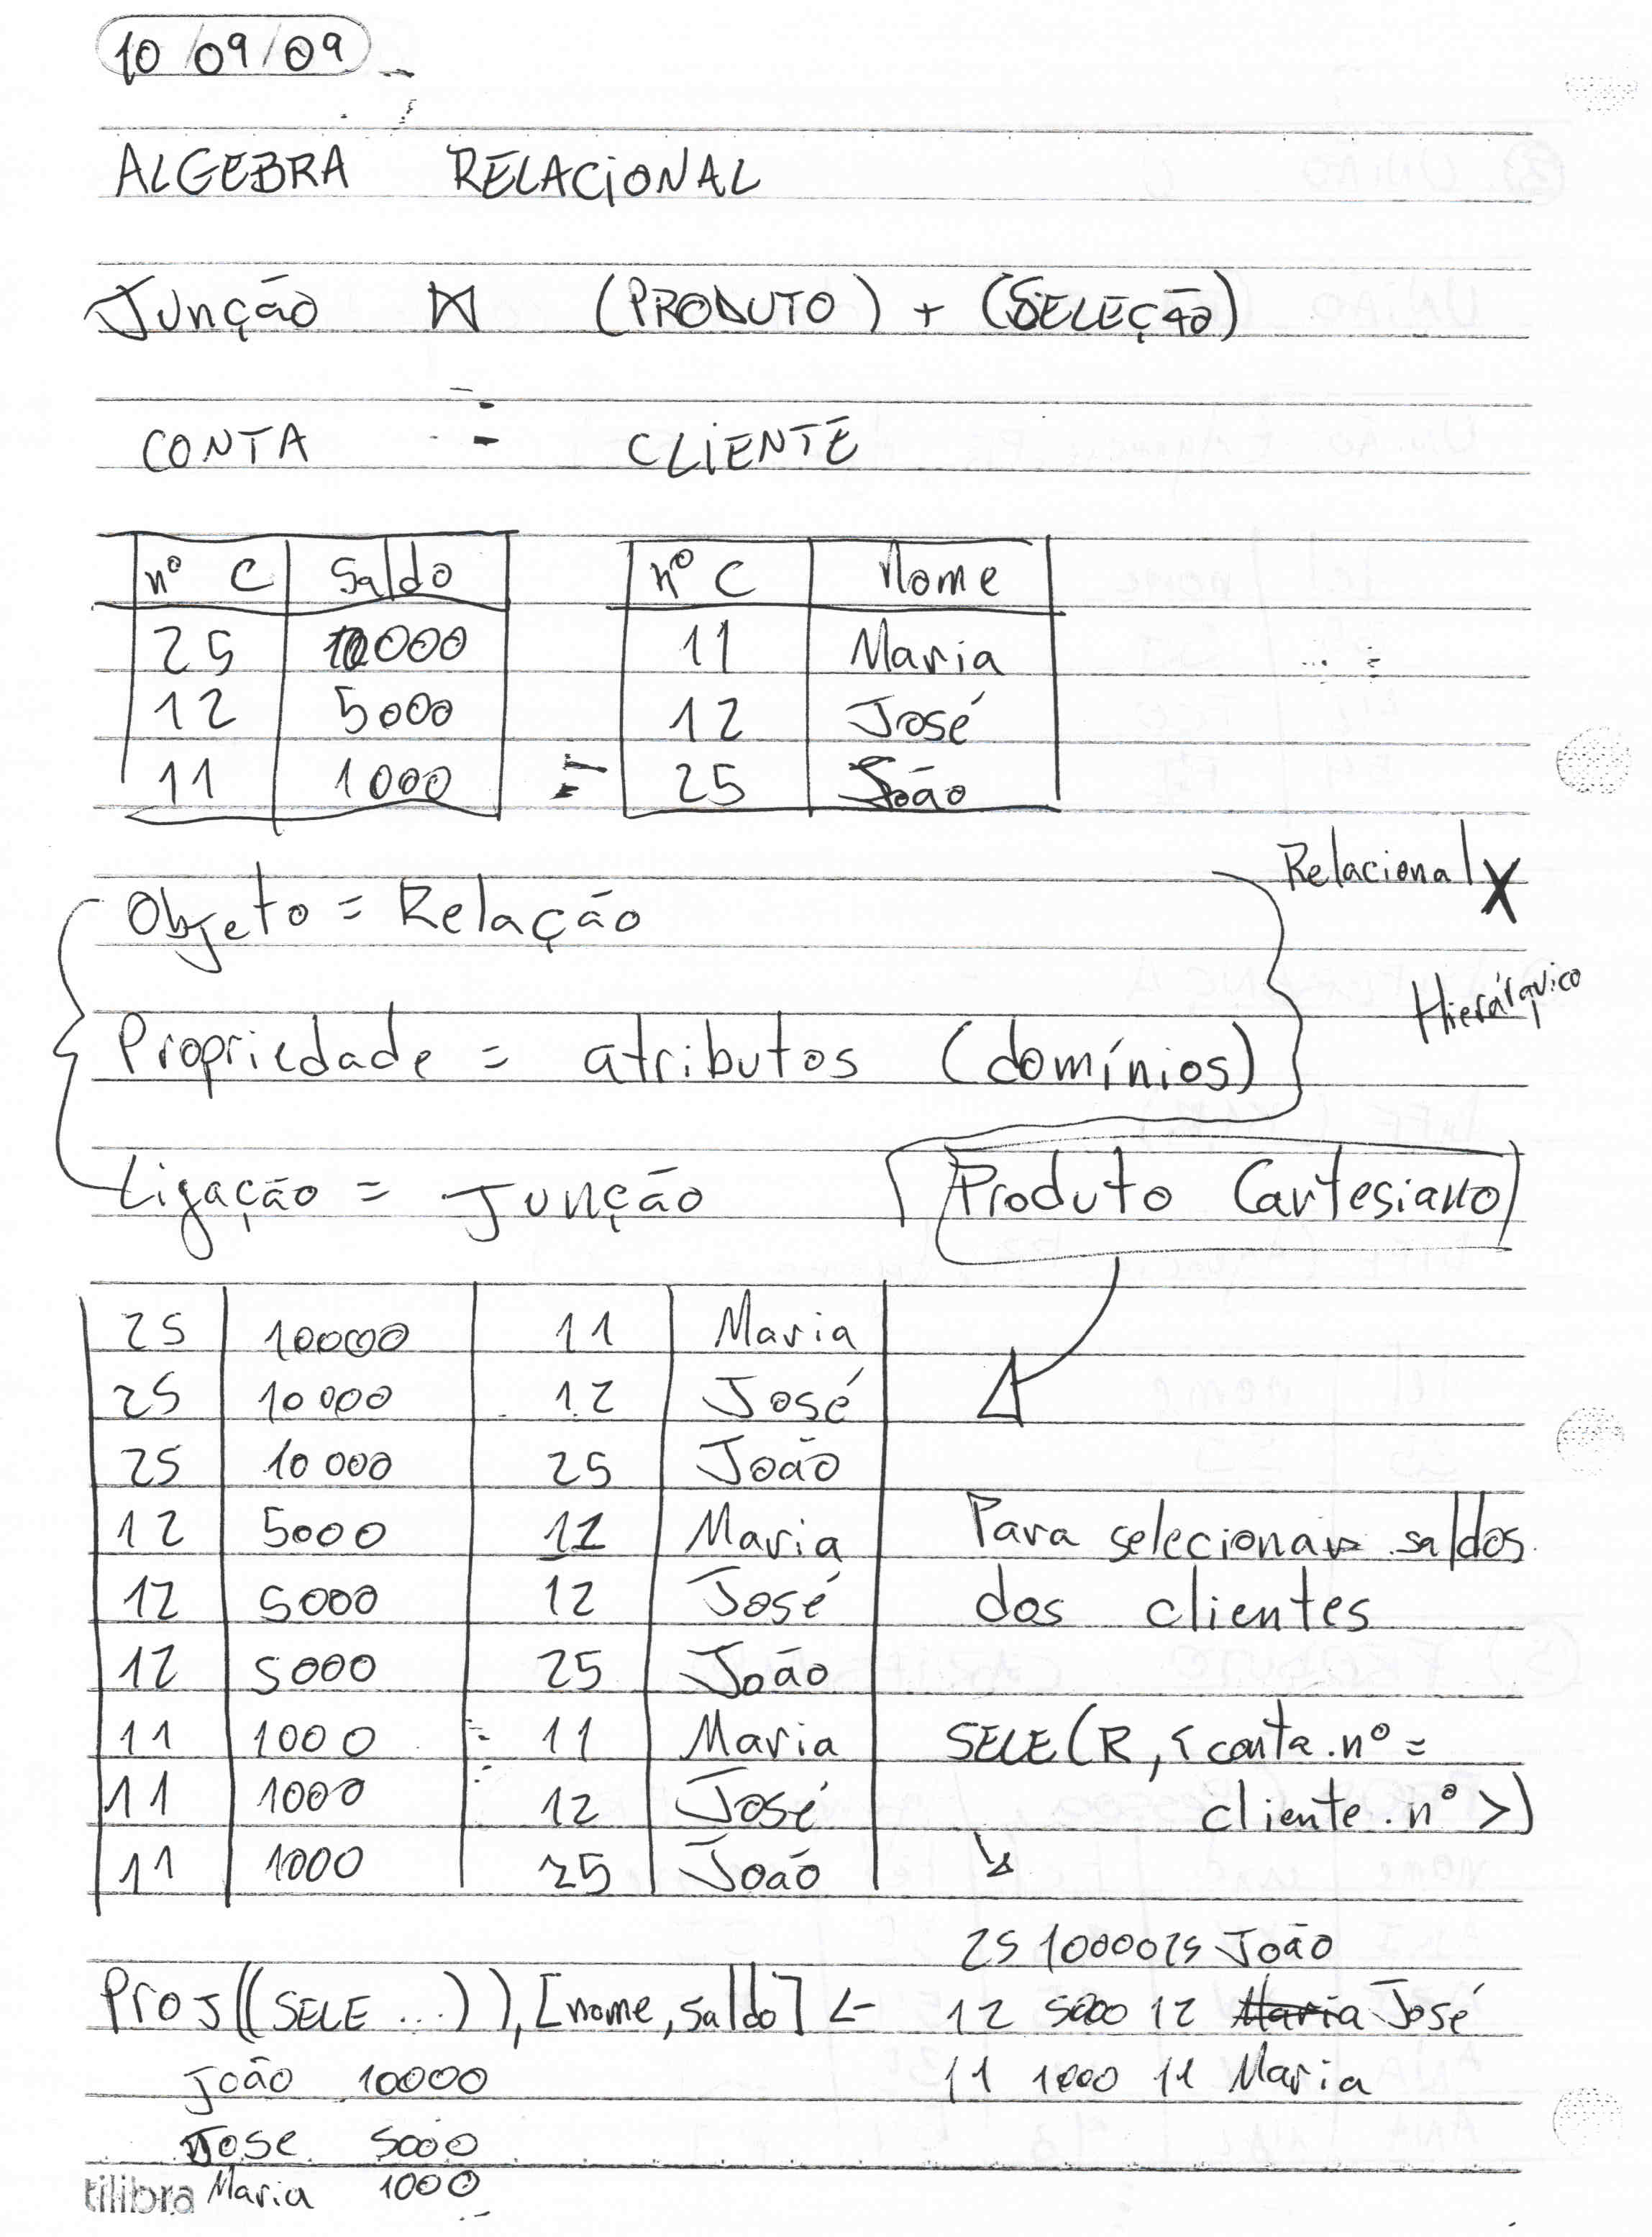 10/09/09
ALGEBRA RELACIONAL
Junção ⋈ (PRODUTO) + (SELEÇÃO)
CONTA CLIENTE
nº C Saldo nº C Nome
25 10000 11 Maria
12 5000 12 José
11 1000 25 João
Relacional X
Hierárquico
Objeto = Relação
Propriedade = atributos (domínios)
Ligação = Junção
Produto Cartesiano
25 10000 11 Maria
25 10000 12 José
25 10000 25 João
12 5000 11 Maria
12 5000 12 José
12 5000 25 João
11 1000 11 Maria
11 1000 12 José
11 1000 25 João
Para selecionar saldos
dos clientes
SELE(R, < conta.nº =
cliente.nº >)
25 10000 25 João
12 5000 12 Maria José
11 1000 11 Maria
Proj((SELE ...)), [nome, saldo] ←
João 10000
Jose 5000
Maria 1000
tilibra